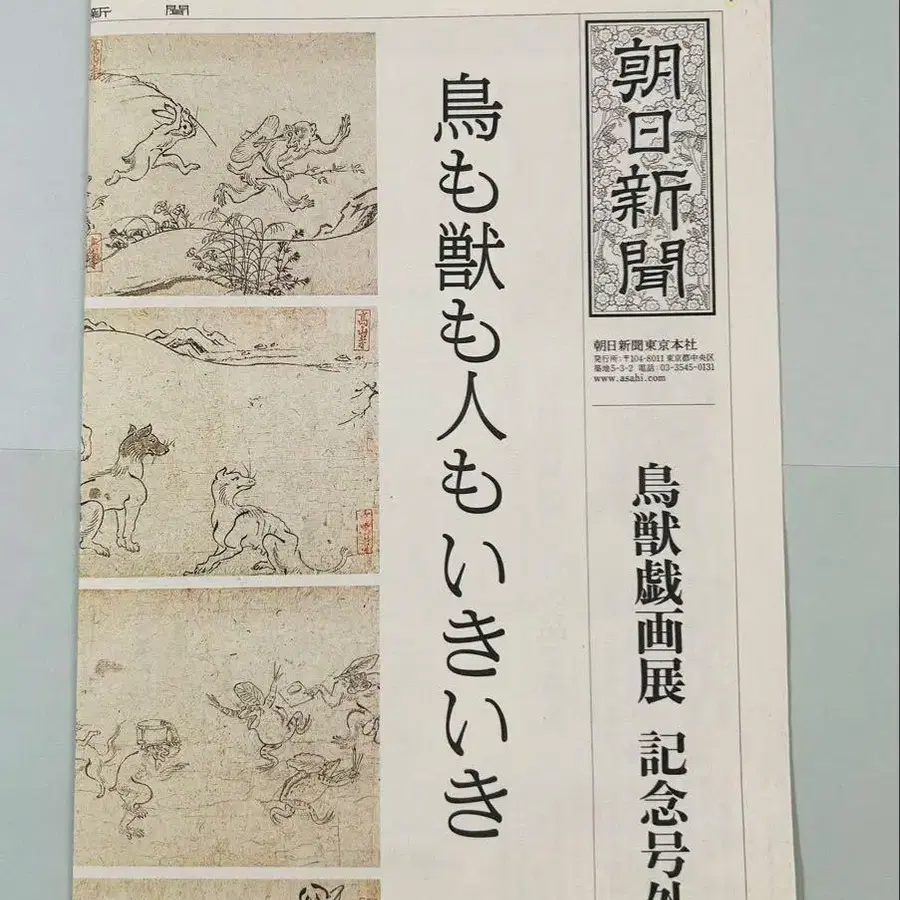 新聞
朝日新聞
朝日新聞東京本社
発行所：〒104-8011 東京都中央区
築地5-3-2 電話：03-3545-0131
www.asahi.com
鳥獣戯画展 記念号外
鳥も獣も人もいきいき
高山寺